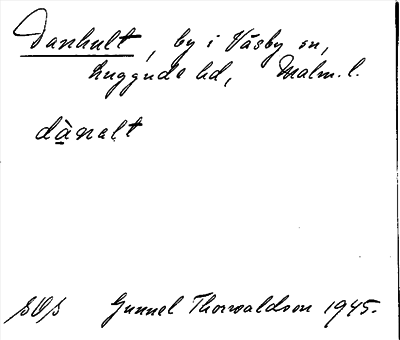 Danhult, by i Väsby sn,
Luggude hd, Malm. l.
dànalt
SOS Gunnel Thorvaldson 1945.